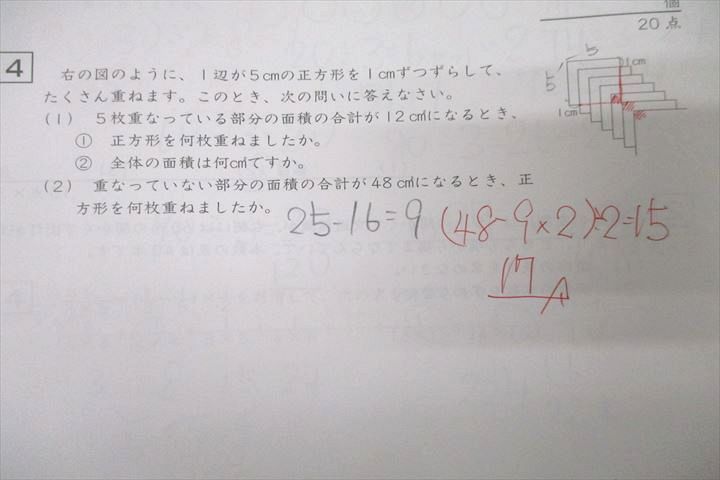 個
20 点
4
右の図のように、1辺が5cmの正方形を1cmずつずらして、
たくさん重ねます。このとき、次の問いに答えなさい。
(1) 5枚重なっている部分の面積の合計が12c㎡になるとき、
① 正方形を何枚重ねましたか。
② 全体の面積は何c㎡ですか。
(2) 重なっていない部分の面積の合計が48c㎡になるとき、正
方形を何枚重ねましたか。
5
5
1cm
1cm
25-16=9
(48-9×2)÷2=15
17